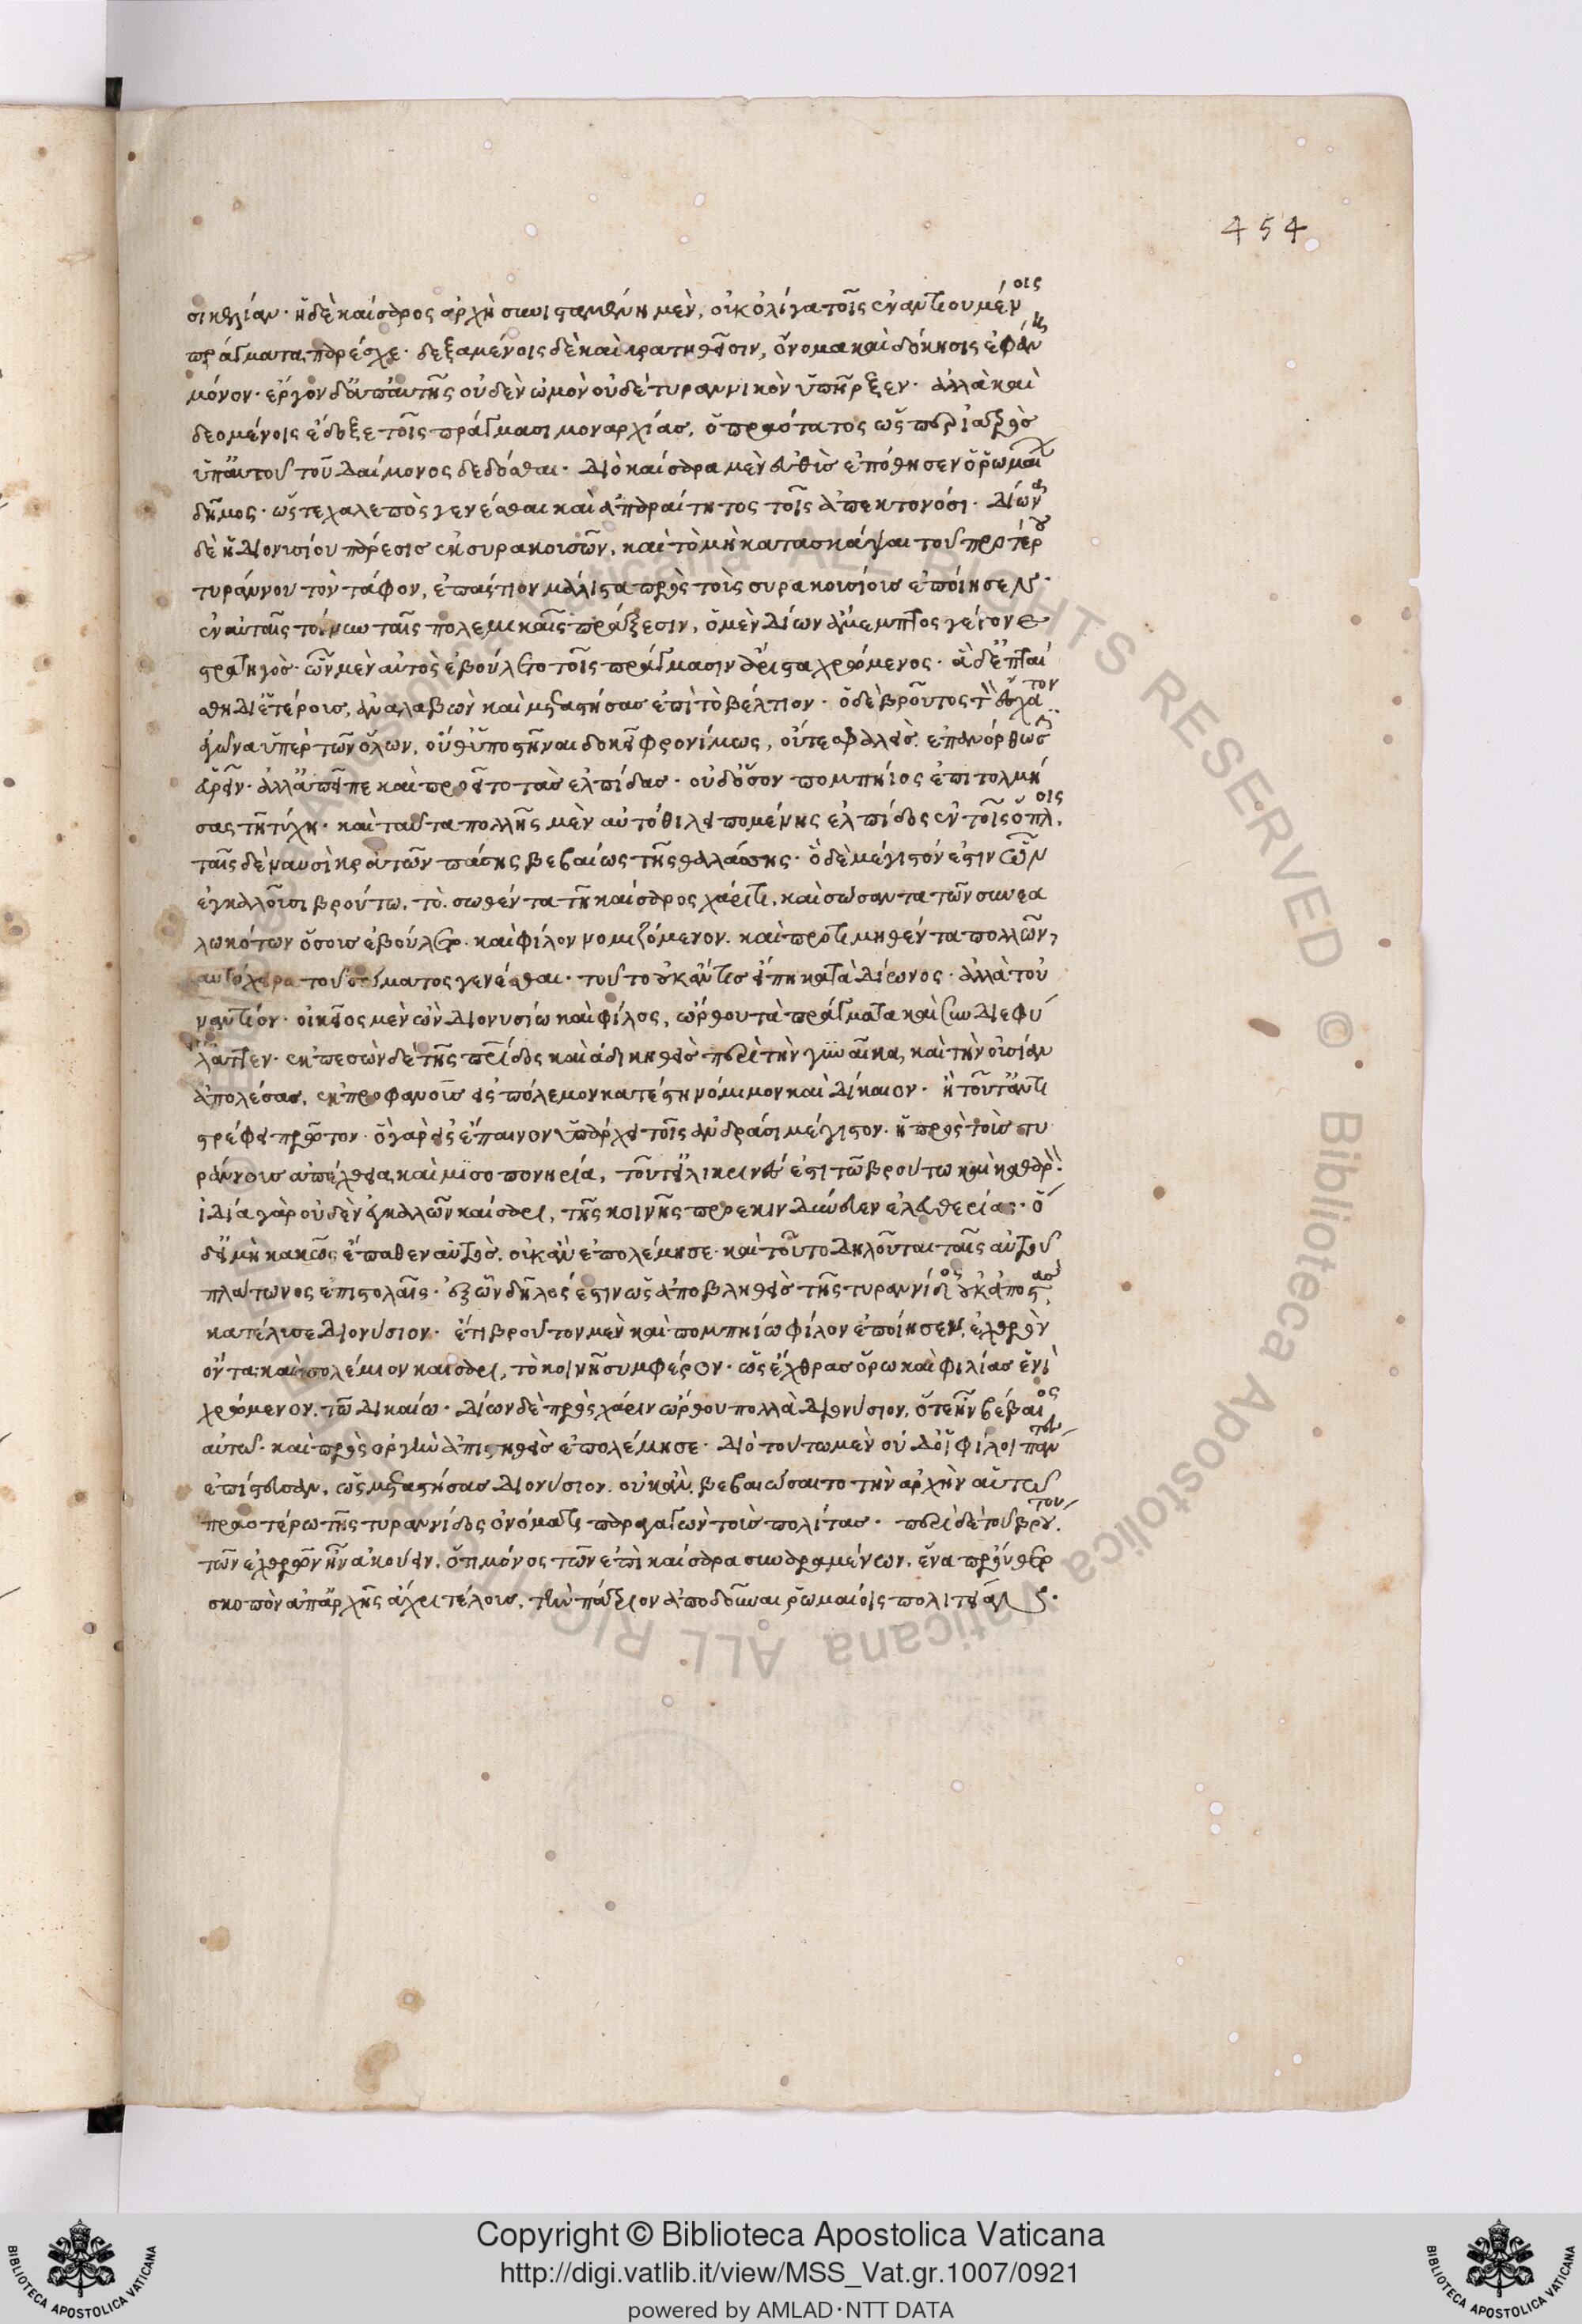 454
σικελίαν· ἡ δὲ καίσαρος ἀρχὴ συνισταμένη μὲν, οὐκ ὀλίγα τοῖς ἐναντιουμένοις
πράγματα παρέσχε· δεξαμένοις δὲ καὶ κρατηθεῖσιν, ὄνομα καὶ δόκησις ἐφάνη
μόνον· ἔργον δ' ἀπ' αὐτῆς οὐδὲν ὠμὸν οὐδὲ τυραννικὸν ὑπῆρξεν· ἀλλὰ καὶ
δεομένοις ἔδοξε τοῖς πράγμασι μοναρχίας, ὁ πραότατος ὡς περ ἰατρὸς
ὑπ' αὐτοῦ τοῦ δαίμονος δεδόσθαι· διὸ καίσαρα μὲν εὐθὺς ἐπόθησεν ὁ ῥωμαίων
δῆμος· ὥστε χαλεπὸς γενέσθαι καὶ ἀπαραίτητος τοῖς ἀπεκτονόσι· δίωνα
δὲ ἡ διονυσίου πάρεσις ἐκ συρακουσῶν, καὶ τὸ μὴ κατασκάψαι τοῦ προτέρου
τυράννου τὸν τάφον, ἐπαίτιον μάλιστα πρὸς τοὺς συρακουσίους ἐποίησεν·
ἐν αὐταῖς τοίνυν ταῖς πολεμικαῖς πράξεσιν, ὁ μὲν δίων ἄμεμπτος γέγονε
στρατηγὸς· ὧν μὲν αὐτὸς ἐβούλετο τοῖς πράγμασιν ἄριστα χρώμενος· ἃ δ' ἔπταί
σθη δι' ἑτέρους, ἀναλαβὼν καὶ μεταστήσας ἐπὶ τὸ βέλτιον· ὁ δὲ βροῦτος τὸν ἔσχατον
ἀγῶνα ὑπὲρ τῶν ὅλων, οὔθ' ὑποστῆναι δοκεῖ φρονίμως, οὔτε σφαλεὶς ἐπανόρθωσιν
εὑρεῖν· ἀλλ' ἀπεῖπε καὶ προεῖτο τὰς ἐλπίδας· οὐδ' ὅσον πομπήιος ἐπιτολμή
σας τῇ τύχῃ· καὶ ταῦτα πολλῆς μὲν αὐτόθι λειπομένης ἐλπίδος ἐν τοῖς ὅπλοις,
ταῖς δὲ ναυσὶ κρατῶν πάσης βεβαίως τῆς θαλάσσης· ὃ δὲ μέγιστόν ἐστιν ὧν
ἐγκαλοῦσι βρούτω, τὸ σωθέντα τῇ καίσαρος χάριτι, καὶ σώσαντα τῶν συνεα
λωκότων ὅσους ἐβούλετο, καὶ φίλον νομιζόμενον, καὶ προτιμηθέντα πολλῶν,
αὐτόχειρα τοῦ σώματος γενέσθαι· τοῦτο οὐκ ἄν τις εἴπῃ κατὰ δίωνος· ἀλλὰ τοὐ
ναντίον· οἰκεῖος μὲν ὢν διονυσίω καὶ φίλος, ὤρθου τὰ πράγματα καὶ συνδιεφύ
λαττεν· ἐκπεσὼν δὲ τῆς πατρίδος καὶ ἀδικηθεὶς περὶ τὴν γυναῖκα, καὶ τὴν οὐσίαν
ἀπολέσας, ἐκ προφανοῦς εἰς πόλεμον κατέστη νόμιμον καὶ δίκαιον· ἢ τοῦτ' ἀντι
στρέφει πρῶτον· ὃ γὰρ εἰς ἔπαινον ὑπάρχει τοῖς ἀνδράσι μέγιστον, ἡ πρὸς τοὺς τυ
ράννους ἀπέχθεια, καὶ μισοπονηρία, τοῦτ' εἰλικρινὲς ἐστι τῶ βρούτω καὶ καθαρὸν·
ἰδίᾳ γὰρ οὐδὲν ἐγκαλῶν καίσαρι, τῆς κοινῆς προεκινδύνευεν ἐλευθερίας· ὁ
δ' εἰ μὴ κακῶς ἔπαθεν αὐτὸς, οὐκ ἂν ἐπολέμησε· καὶ τοῦτο δηλοῦται ταῖς αὐτοῦ
πλάτωνος ἐπιστολαῖς· ἐξ ὧν δῆλός ἐστιν ὡς ἀποβληθεὶς τῆς τυραννίδος οὐκ ἀποστὰς,
κατέλυσε διονύσιον· ἔτι βροῦτον μὲν καὶ πομπηίω φίλον ἐποίησεν, ἐχθρὸν
ὄντα· καὶ πολέμιον καίσαρι, τὸ κοινῇ συμφέρον· ὡς ἔχθρας ὅρω καὶ φιλίας ἑνὶ
χρώμενον τῶ δικαίω· δίων δὲ πρὸς χάριν ὤρθου πολλὰ διονύσιον, ὅτε ἦν βέβαιος
αὐτῶ· καὶ πρὸς ὀργὴν ἀπιστηθεὶς ἐπολέμησε· διὸ τούτω μὲν οὐδ' οἱ φίλοι πάντες
ἐπίστευσαν, ὡς μεταστήσας διονύσιον, οὐκ ἂν βεβαιώσαιτο τὴν ἀρχὴν αὑτῶ
πραοτέρω τῆς τυραννίδος ὀνόματι παραγαγὼν τοὺς πολίτας· περὶ δὲ τοῦ βρούτου
τῶν ἐχθρῶν ἦν ἀκούειν, ὅτι μόνος τῶν ἐπὶ καίσαρα συναραμένων, ἕνα προὔθετο
σκοπὸν ἀπ' ἀρχῆς ἄχρι τέλους, τὴν πάτριον ἀποδοῦναι ῥωμαίοις πολιτείαν.
Copyright © Biblioteca Apostolica Vaticana
http://digi.vatlib.it/view/MSS_Vat.gr.1007/0921
powered by AMLAD·NTT DATA